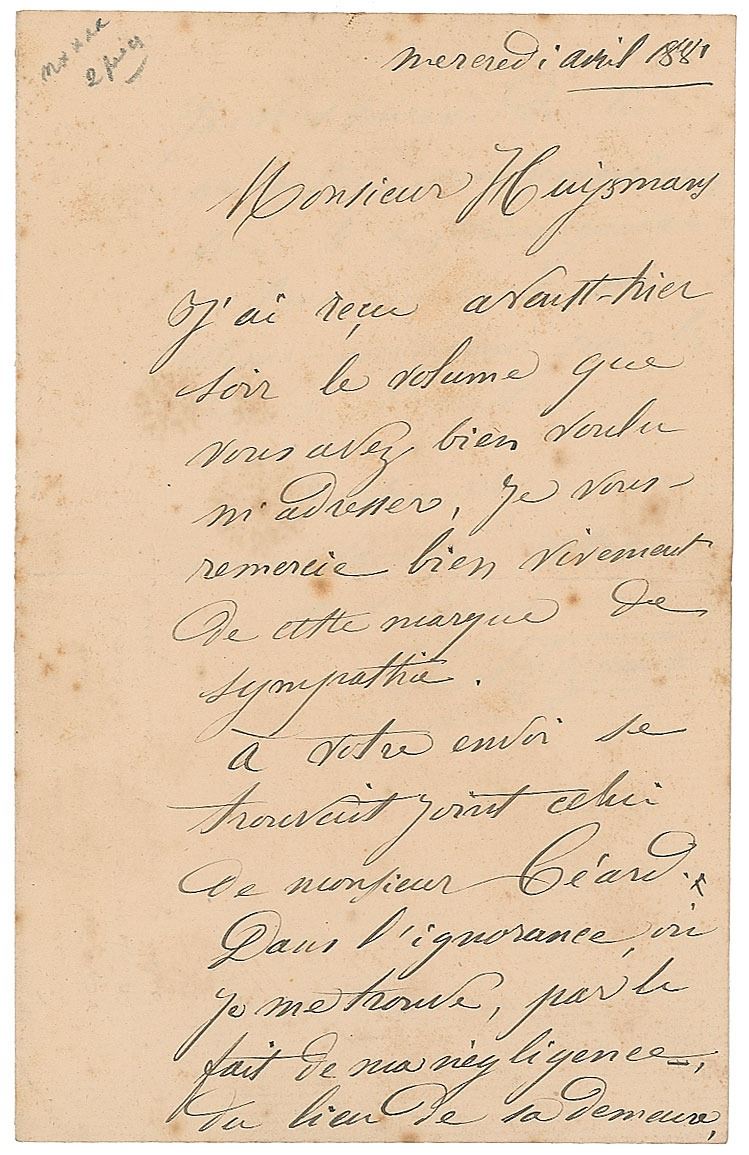 mercredi avril 1881
Monsieur Huijsmans
J'ai reçu avant-hier
soir le volume que
vous avez bien voulu
m'adresser, je vous
remercie bien vivement
de cette marque de
sympathie.
à votre envoi se
trouvait joint celui
de monsieur Céard.
Dans l'ignorance, où
je me trouve, par le
fait de ma négligence,
du lieu de sa demeure,